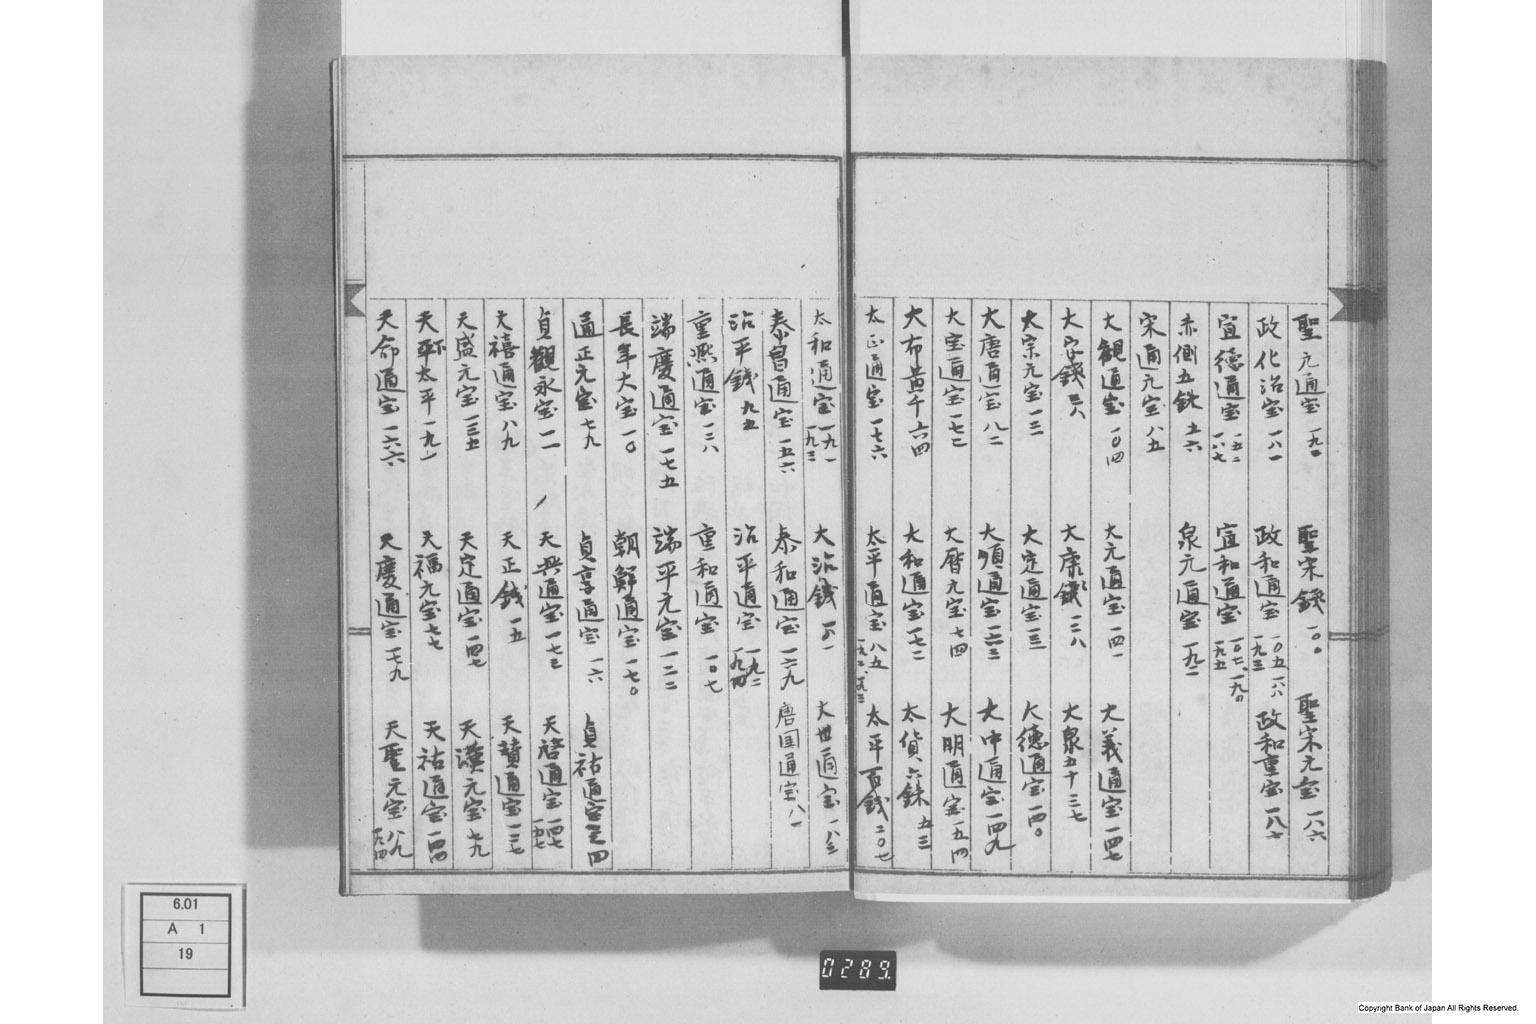 聖元通宝 一九一 聖宋錢 一〇〇 聖宋元宝 一八六
政化治宝 一八一 政和通宝 一〇五 一八八 一九三 政和重宝 一八七
宣徳通宝 一五二 一六七 宣和通宝 一〇七、一九〇 一九五
赤側五銖 五六 泉元通宝 一九二
宋通元宝 八五
大観通宝 一〇四 大元通宝 一四一 大義通宝 一四七
大宋錢 大康錢 一二八 大泉五十 三七
太宋元宝 一三 大定通宝 一三 大徳通宝 一四〇
大唐通宝 八二 大順通宝 一六三 大中通宝 一四九
大宝通宝 一七二 大暦元宝 七四 大明通宝 一五四
大布黄千 六四 大和通宝 一七二 太貨六銖 五三
太正通宝 一七六 太平通宝 八五 太平百錢 二〇七
太和通宝 一九一 一九三 大治錢 大世通宝 一八三
泰昌通宝 一五六 泰和通宝 一六九 唐国通宝 八一
治平錢 九五 治平通宝 一九二 一九四
重熙通宝 一二八 重和通宝 一〇七
端慶通宝 一七五 端平元宝 一二二
長年大宝 一〇 朝鮮通宝 一七〇
通正元宝 七九 貞享通宝 一六 貞祐通宝
貞観永宝 一一 天興通宝 一七三 天啓通宝 一四七 一五七
天禧通宝 八九 天正錢 一五 天賛通宝 一二七
天盛元宝 一三五 天定通宝 一四七 天漢元宝 七九
天弥太平 一九一 天福元宝 七七 天祐通宝 一四四
天命通宝 一六六 天慶通宝 一七九 天聖元宝 八九 一九四
6.01
A 1
19
0289
Copyright Bank of Japan All Rights Reserved.